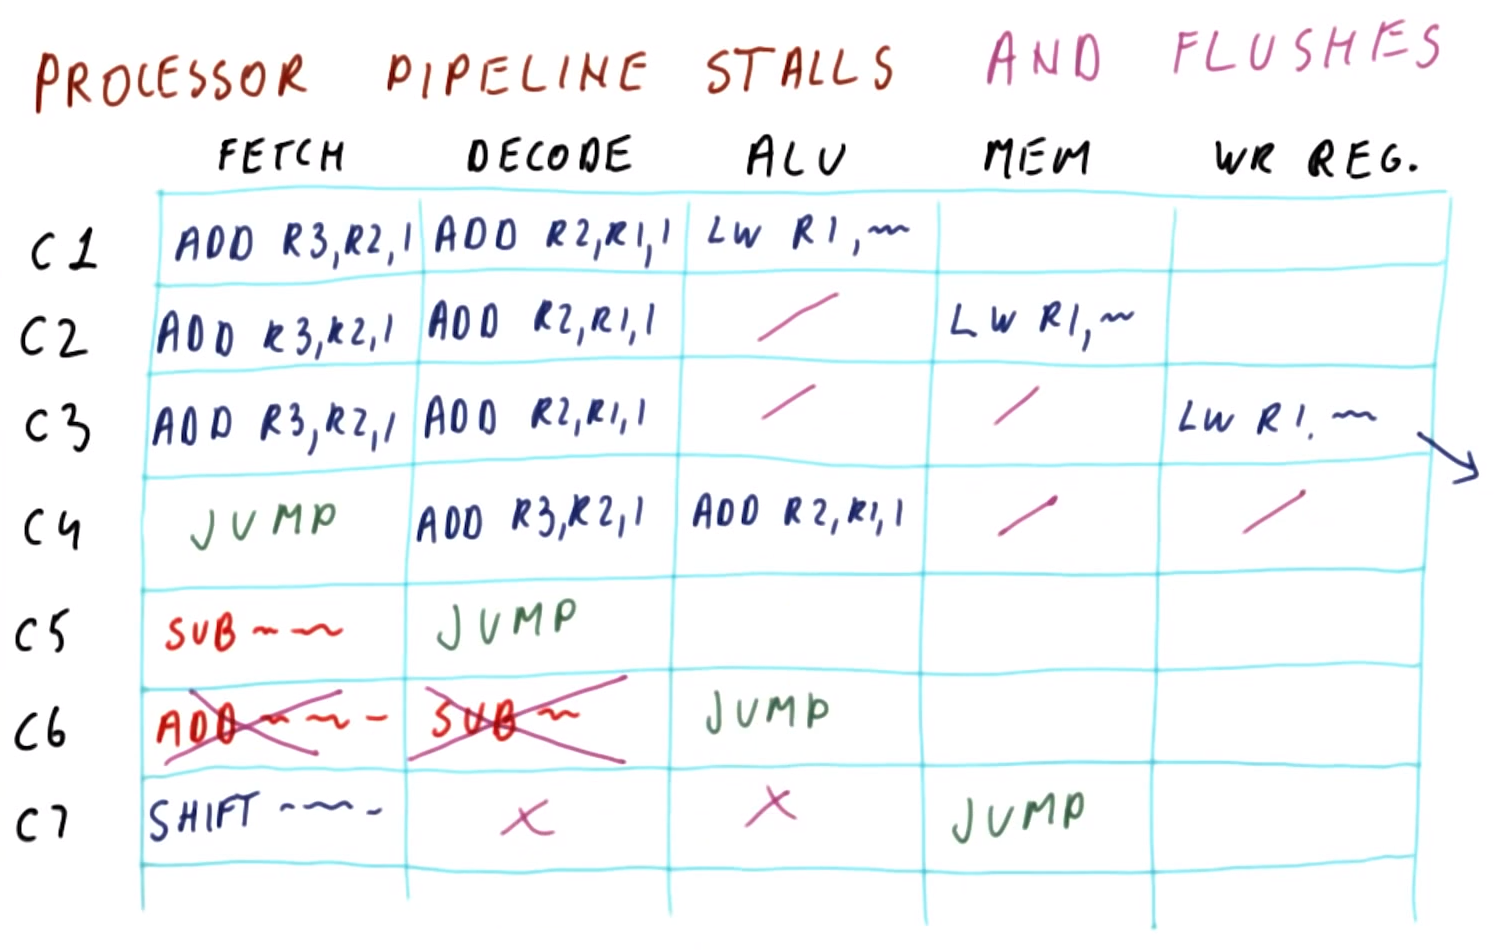 PROCESSOR PIPELINE STALLS AND FLUSHES
FETCH DECODE ALU MEM WR REG.
C1 ADD R3,R2,1 ADD R2,R1,1 LW R1,~
C2 ADD R3,R2,1 ADD R2,R1,1 LW R1,~
C3 ADD R3,R2,1 ADD R2,R1,1 LW R1,~
C4 JUMP ADD R3,R2,1 ADD R2,R1,1
C5 SUB JUMP
C6 ADD SUB JUMP
C7 SHIFT X X JUMP